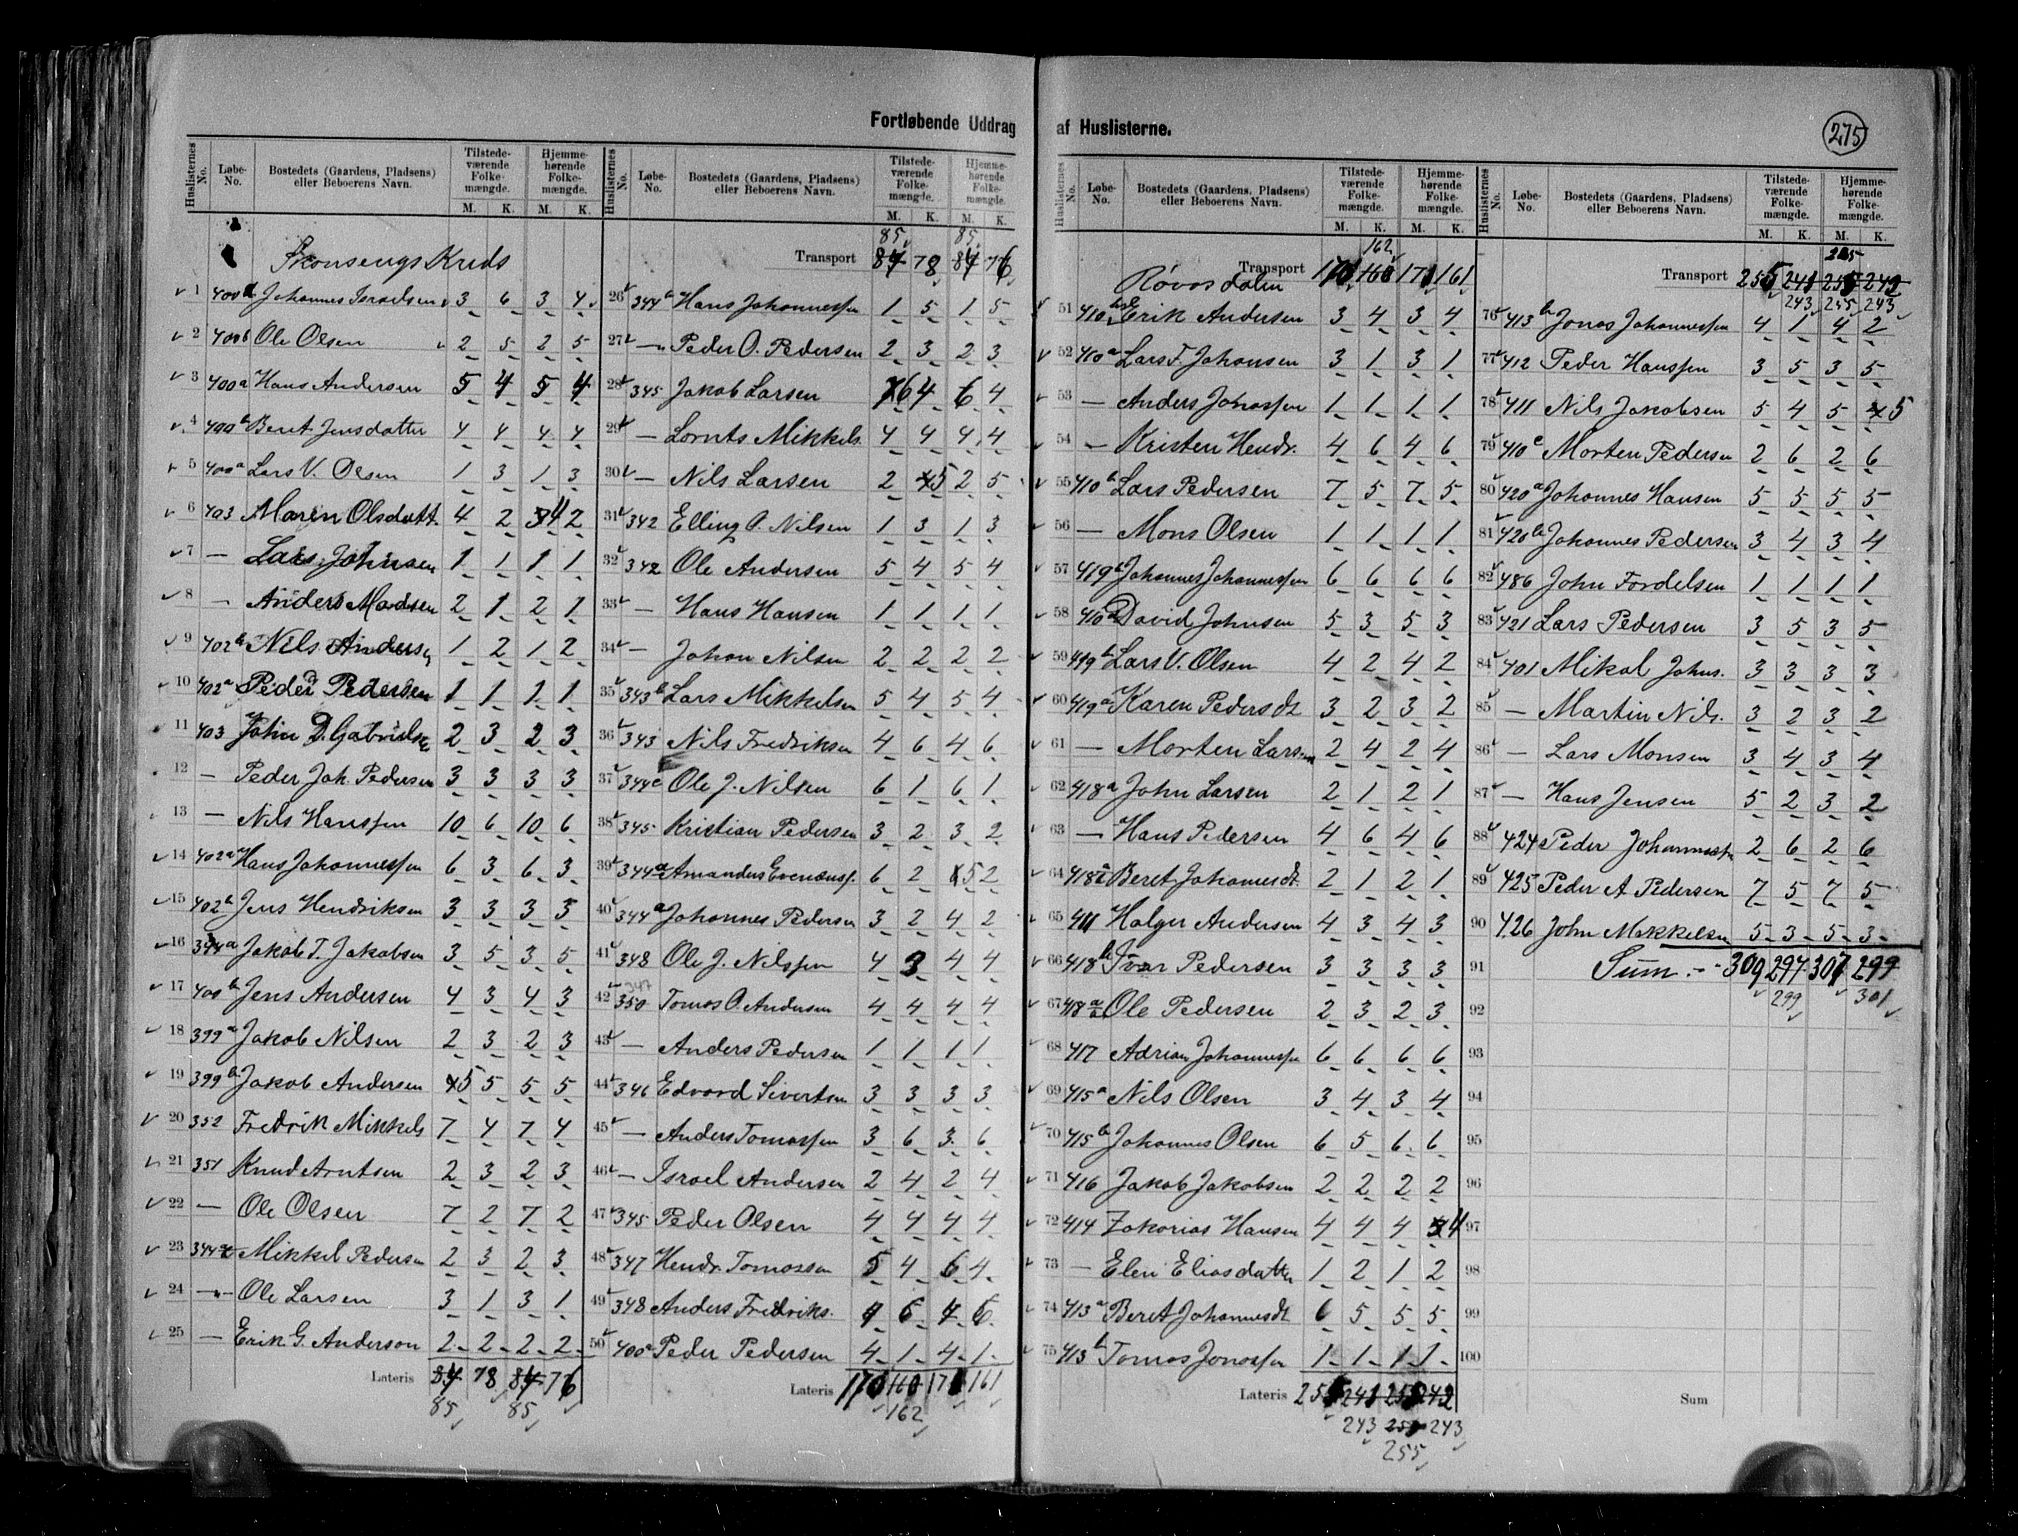 Fortløbende Uddrag af Huslisterne.
275
Huslisternes No. Løbe-No. Bostedets (Gaardens, Pladsens) eller Beboerens Navn. Tilstedeværende Folkemængde. Hjemmehørende Folkemængde.
M. K. M. K.
Skonsengs Kreds
1 400 Johannes Israelsen 3 6 3 4
2 400b Ole Olsen 2 5 2 5
3 400a Hans Andersen 5 4 5 4
4 400b Beret Jensdatter 4 4 4 4
5 400a Lars V. Olsen 1 3 1 3
6 403 Maren Olsdatt. 4 2 4 2
7 — Lars Johnsen 1 1 1 1
8 — Anders Madsen 2 1 2 1
9 402b Nils Anders 1 2 1 2
10 402a Peder Pedersen 1 1 1 1
11 403 John D. Gabrielse 2 3 2 3
12 — Peder Joh. Pedersen 3 3 3 3
13 — Nils Hanssen 10 6 10 6
14 402a Hans Johannessen 6 3 6 3
15 402b Jens Hendriksen 3 3 3 3
16 344a Jakob T. Jakobsen 3 5 3 5
17 400b Jens Andersen 4 3 4 3
18 399a Jakob Nilsen 2 3 2 3
19 399b Jakob Andersen 5 5 5 5
20 352 Fredrik Mikkels 7 4 7 4
21 351 Knud Arntsen 2 3 2 3
22 — Ole Olsen 7 2 7 2
23 344c Mikkel Pedersen 2 3 2 3
24 — Ole Larsen 3 1 3 1
25 — Erik G. Anderson 2 2 2 2
Lateris 84 78 84 76
85 85
85 85
Transport 84 78 84 76
26 344b Hans Johannessen 1 5 1 5
27 — Peder O. Pedersen 2 3 2 3
28 345 Jakob Larsen 6 4 6 4
29 — Lornts Mikkels. 4 4 4 4
30 — Nils Larsen 2 5 2 5
31 342 Elling A. Nilsen 1 3 1 3
32 342 Ole Andersen 5 4 5 4
33 — Hans Hansen 1 1 1 1
34 — Johan Nilsen 2 2 2 2
35 343b Lars Mikkelsen 5 4 5 4
36 343 Nils Fredriksen 4 6 4 6
37 344c Ole J. Nilsen 6 1 6 1
38 345 Kristian Pedersen 3 2 3 2
39 344a Amandus 6 2 5 2
40 344a Johannes Pedersen 3 2 4 2
41 348 Ole J. Nilssen 4 3 4 4
347
42 350 Tomas O. Andersen 4 4 4 4
43 — Anders Pedersen 1 1 1 1
44 346 Edvard Sivertsen 3 3 3 3
45 — Anders Tomassen 3 6 3 6
46 — Israel Andersen 2 4 2 4
47 345 Peder Olsen 4 4 4 4
48 347 Hendr. Tomassen 5 4 6 4
49 348 Anders Fredriks. 4 6 4 6
50 400a Peder Pedersen 4 1 4 1
Lateris 170 160 171 161
162
Huslisternes No. Løbe-No. Bostedets (Gaardens, Pladsens) eller Beboerens Navn. Tilstedeværende Folkemængde. Hjemmehørende Folkemængde.
M. K. M. K.
162
Transport 170 160 171 161
Røvasdalen
51 410 Erik Andersen 3 4 3 4
52 410a Lars F. Johansen 3 1 3 1
53 — Anders Jonassen 1 1 1 1
54 — Kristen Hendr. 4 6 4 6
55 410b Lars Pedersen 7 5 7 5
56 — Mons Olsen 1 1 1 1
57 419 Johannes Johannessen 6 6 6 6
58 410 David Johnsen 5 3 5 3
59 419b Lars V. Olsen 4 2 4 2
60 419a Karen Pedersdt 3 2 3 2
61 — Morten Larssen 2 4 2 4
62 418a John Larsen 2 1 2 1
63 — Hans Pedersen 4 6 4 6
64 418 Beret Johannesdt. 2 1 2 1
65 411 Holger Andersen 4 3 4 3
66 418b Ivar Pedersen 3 3 3 3
67 418a Ole Pedersen 2 3 2 3
68 417 Adrian Johannessen 6 6 6 6
69 415a Nils Olsen 3 4 3 4
70 415b Johannes Olsen 6 5 6 6
71 416 Jakob Jakobsen 2 2 2 2
72 414 Zakarias Hansen 4 4 4 4
73 — Elen Eliasdatter 1 2 1 2
74 413a Beret Johannesdt 6 5 5 5
75 413b Tomas Jonassen 1 1 1 1
Lateris 255 241 255 242
243 243
255
Transport 255 241 255 243
243 255 243
76 413b Jonas Johannessen 4 1 4 2
77 412 Peder Hanssen 3 5 3 5
78 411 Nils Jakobsen 5 4 5 5
79 410c Morten Pedersen 2 6 2 6
80 420a Johannes Hansen 5 5 5 5
81 420b Johannes Pedersen 3 4 3 4
82 486 John Fordelsen 1 1 1 1
83 421 Lars Pedersen 3 5 3 5
84 401 Mikal Johns. 3 3 3 3
85 — Martin Nils. 3 2 3 2
86 — Lars Monsen 3 4 3 4
87 — Hans Jensen 5 2 3 2
88 424 Peder Johannessen 2 6 2 6
89 425 Peder A Pedersen 7 5 7 5
90 426 John Mikkelsen 5 3 5 3
91 Sum. 309 297 307 299
299 301
92
93
94
95
96
97
98
99
100
Sum